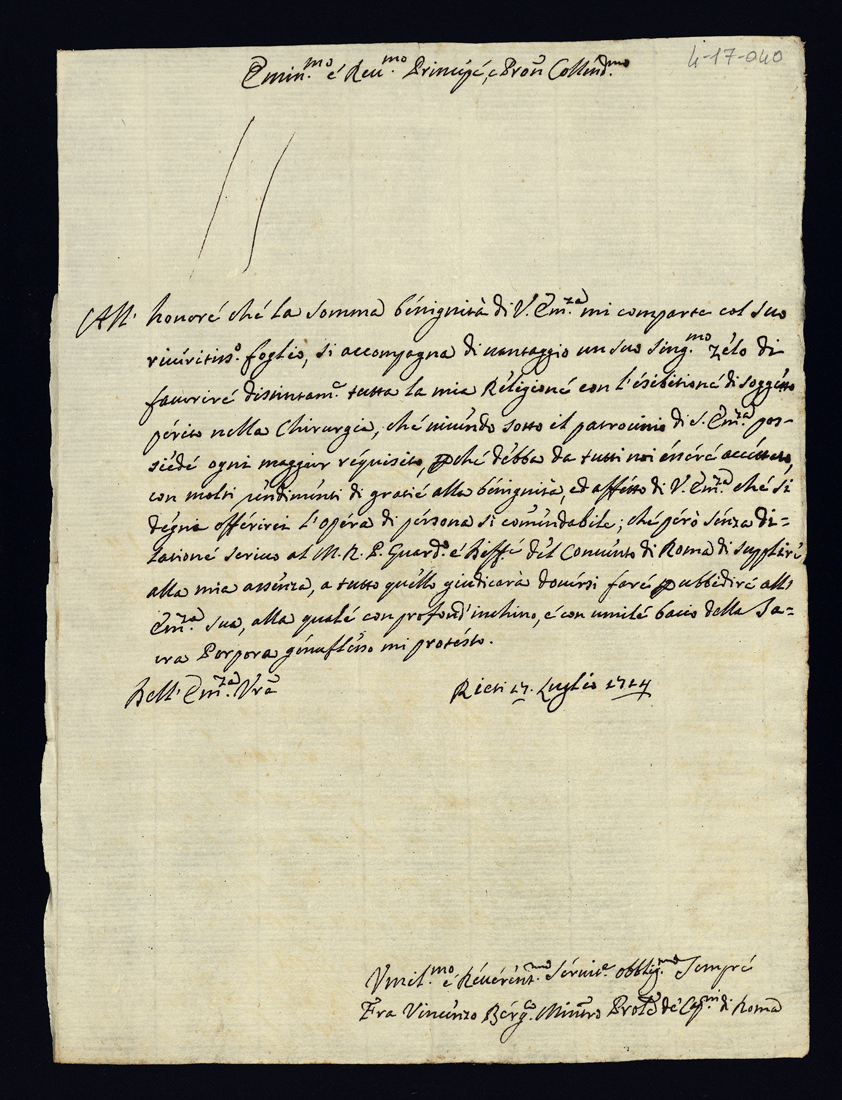 4-17-040
Emin.mo é Reu.mo Principé, é Pron Collmd.mo
All' honoré ché la somma bénignità di V. Em.za mi comparte col suo
riuéritiss.o foglio, si accompagna di uantaggio un suo sing.mo zélo di
fauoriré distintam.e tutta la mia Réligioné con l'ésibitioné di soggétto
périto nella Chirurgia, ché uiuéndo sotto il patrocinio di S. Em.za pos-
siédé ogni maggior réquisito, pché débba da tutti noi ésséré accéttato,
con molti réndiménti di gratié alla bénignità, ed affétto di V. Em.za ché si
dégna offérirci l'opéra di pérsona si coméndabile; ché pérò sénza di=
lationé scriuo al M. R. P. Guard.o é Béffé dél Conuénto di Roma di suppliré,
alla mia assénza, a tutto quéllo giudicarà douérsi faré p ubbidiré all'
Em.za Sua, alla qualé con profond'inchino, é con umilé bacio della Sa=
cra Porpora génufléso mi protésto.
Dell' Em.za Vra
Rieti 17. Luglio 1714
Vmil.mo é Réuérént.mo Séruit.e obblig.mo Sempré
Fra Vincénzo Bérg.o Minro Prole dé Cap.ni di Roma